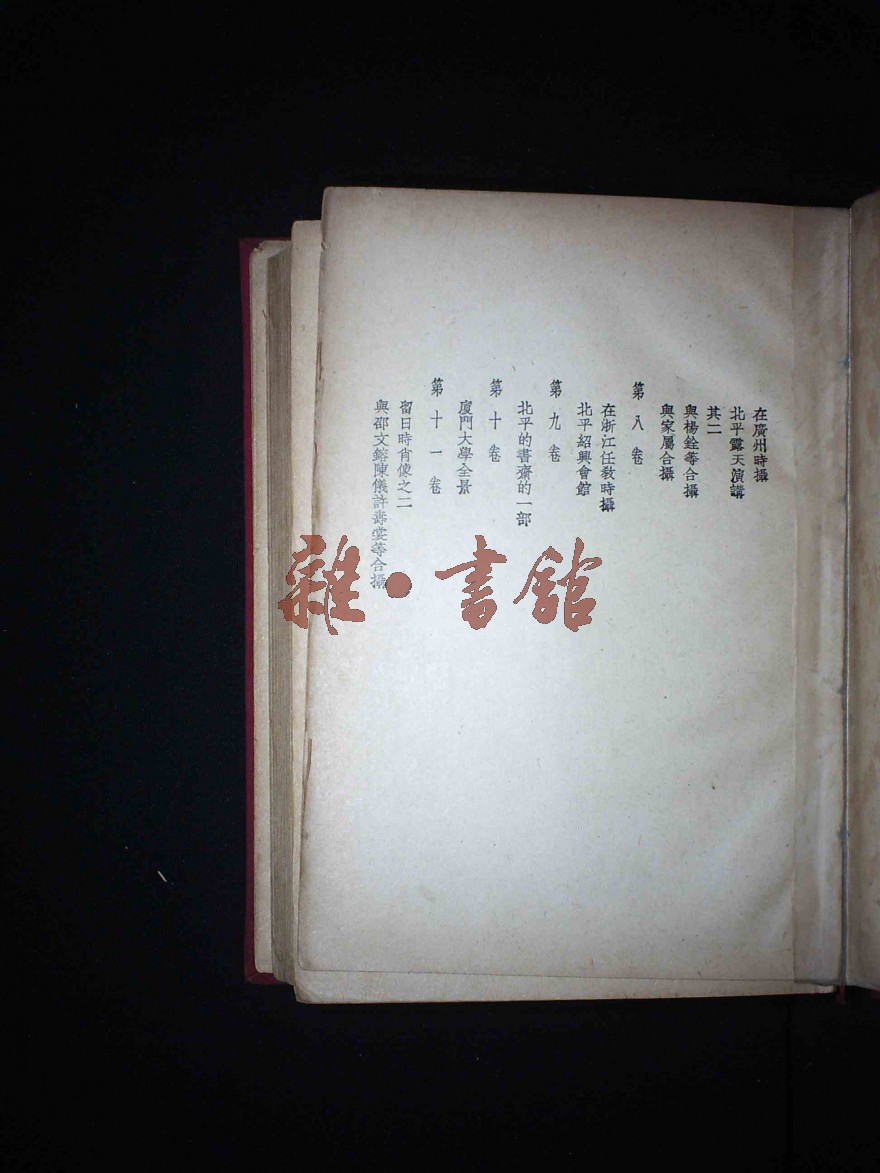 在廣州時攝
北平露天演講
其二
與楊銓等合攝
與家屬合攝
第八卷
在浙江任敎時攝
北平紹興會館
第九卷
北平的書齋的一部
第十卷
廈門大學全景
第十一卷
留日時肖像之二
與邵文鎔陳儀許壽裳等合攝
雜•書館